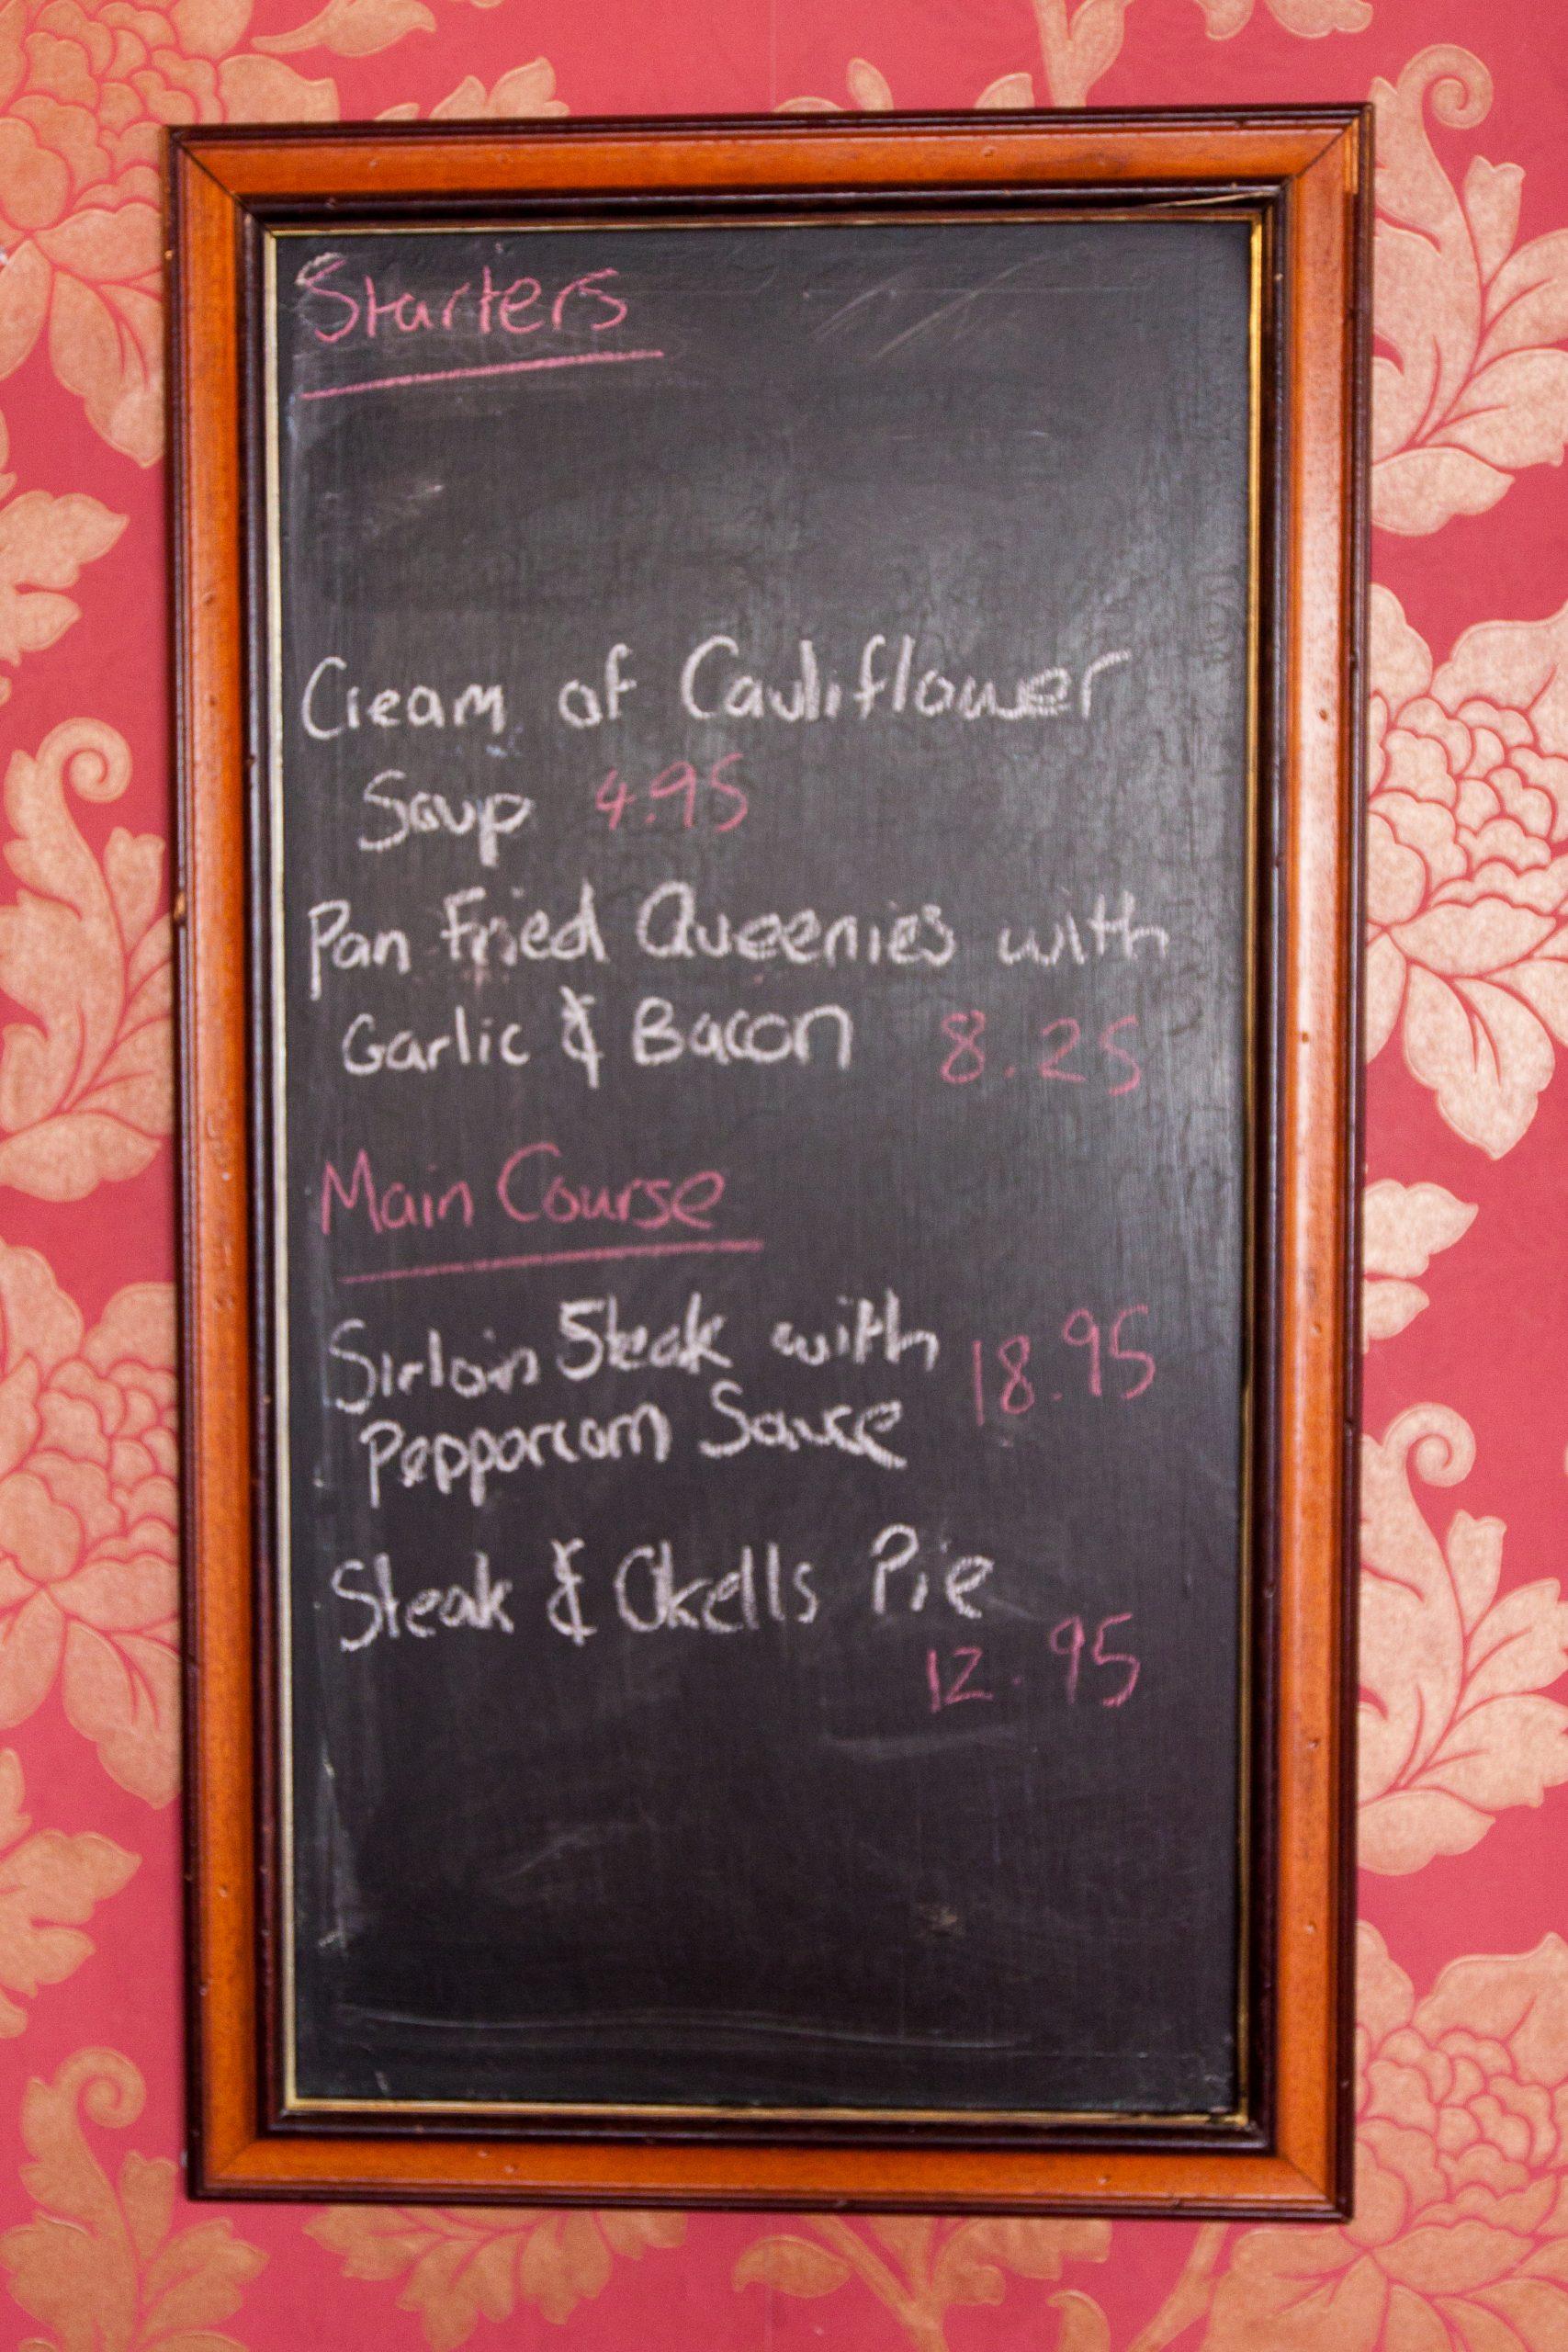 Starters
Cream of Cauliflower
Soup 4.95
Pan Fried Queenies with
Garlic & Bacon 8.25
Main Course
Sirloin Steak with 18.95
Eppporcorn Sauce
Steak & Okells Pie
12.95